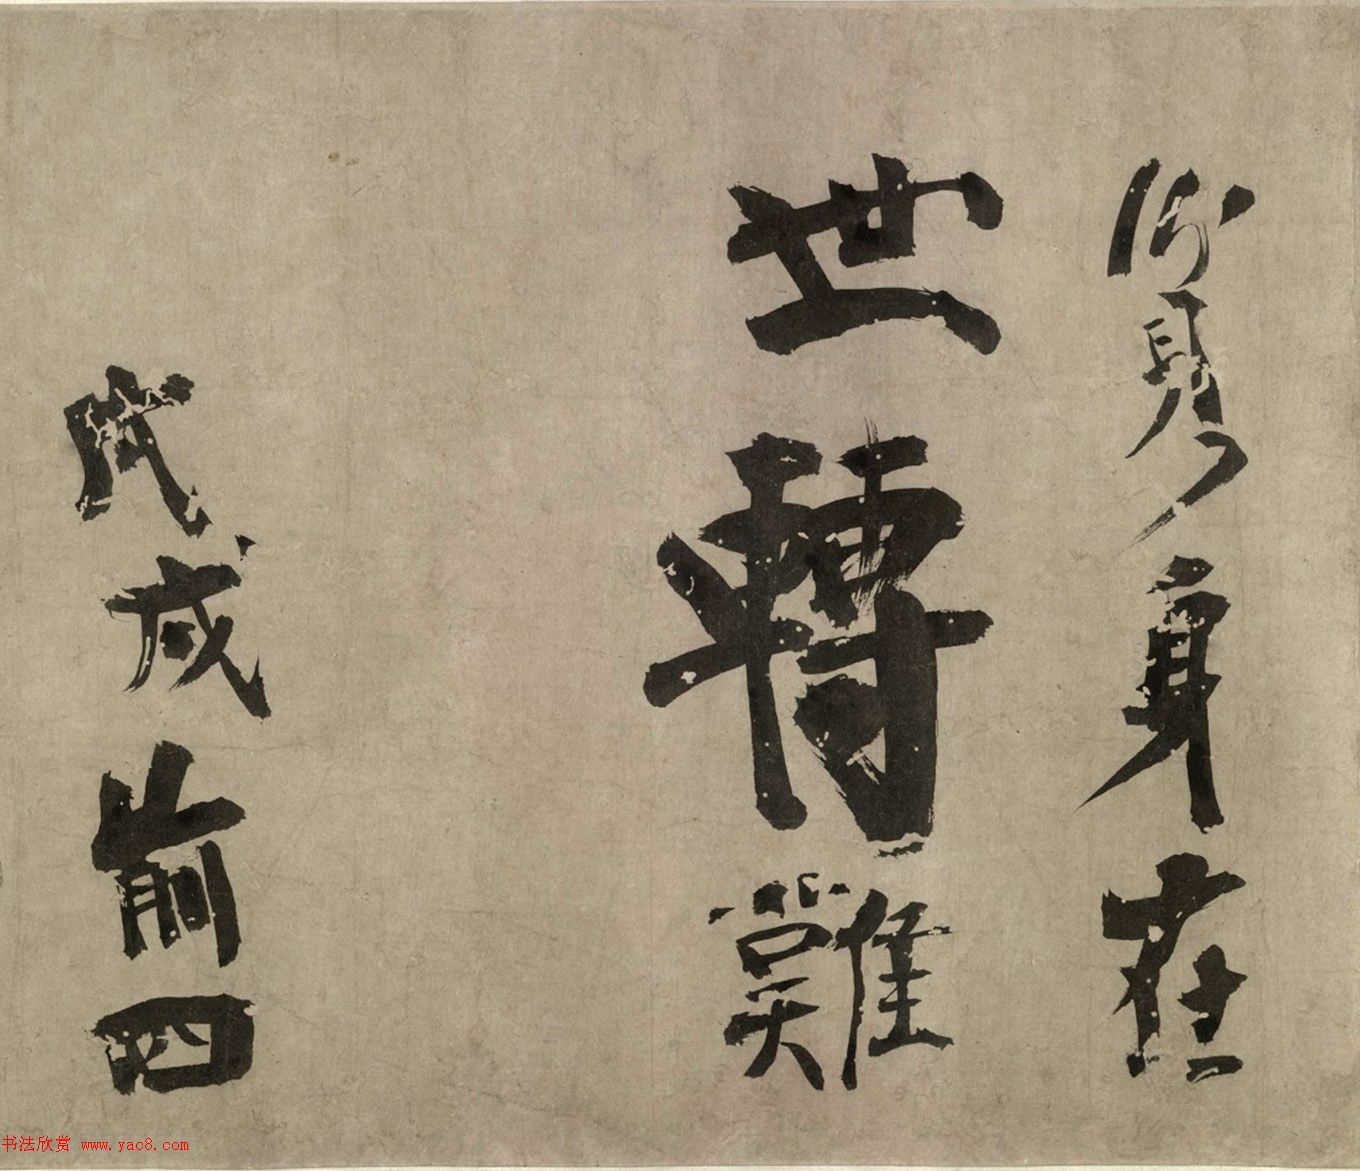 身在
世轉難
戊戌前四
书法欣赏 www.yac8.com